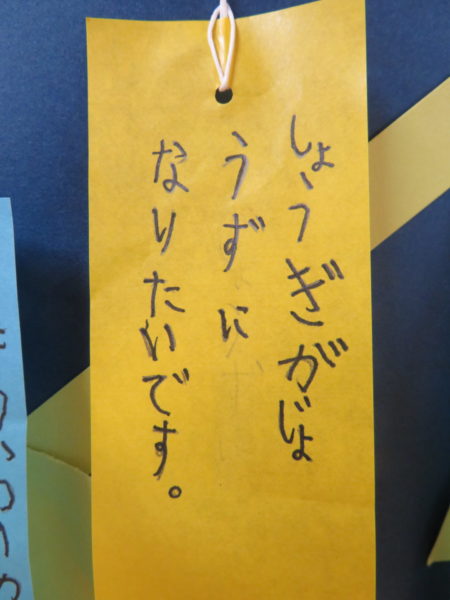 しょうぎがじょ
うずに
なりたいです。